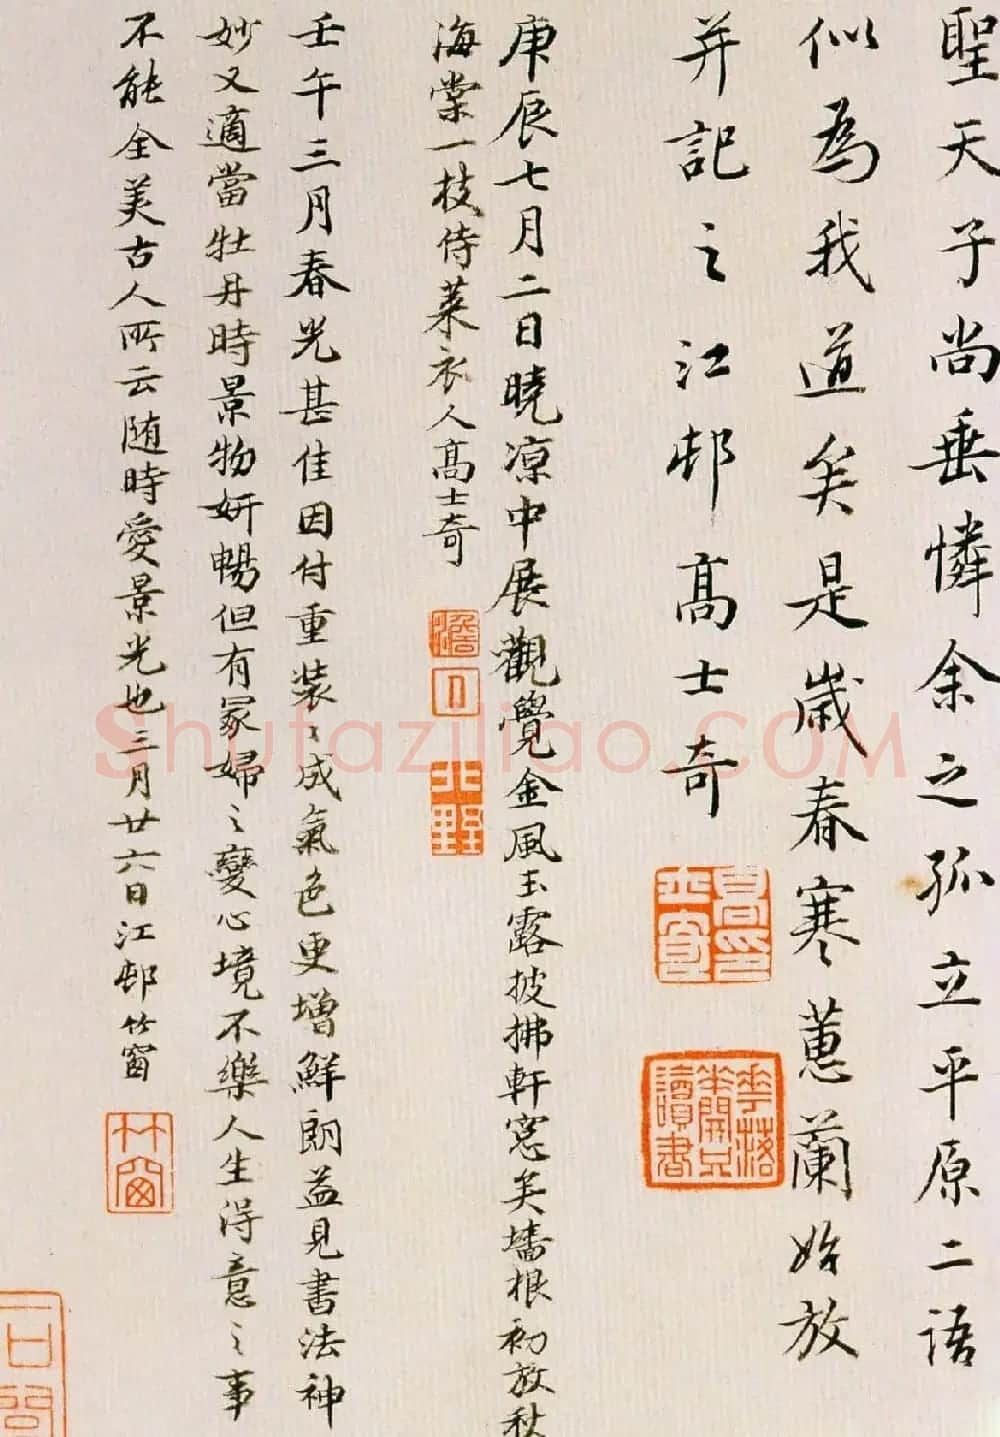 聖天子尚垂憐余之孤立平原二語
似為我道矣是歲春寒蕙蘭始放
并記之江邨高士奇
庚辰七月二日曉凉中展觀覺金風玉露披拂軒窓美墻根初放秋
海棠一枝侍萊衣人高士奇
壬午三月春光甚佳因付重裝〻成氣色更增鮮朗益見書法神
妙又適當牡丹時景物妍暢但有冢婦之變心境不樂人生得意之事
不能全美古人所云随時愛景光也三月廿六日江邨竹窗
高士奇印
花落未開只讀書
澹人
竹窗
Shufaziliao.COM